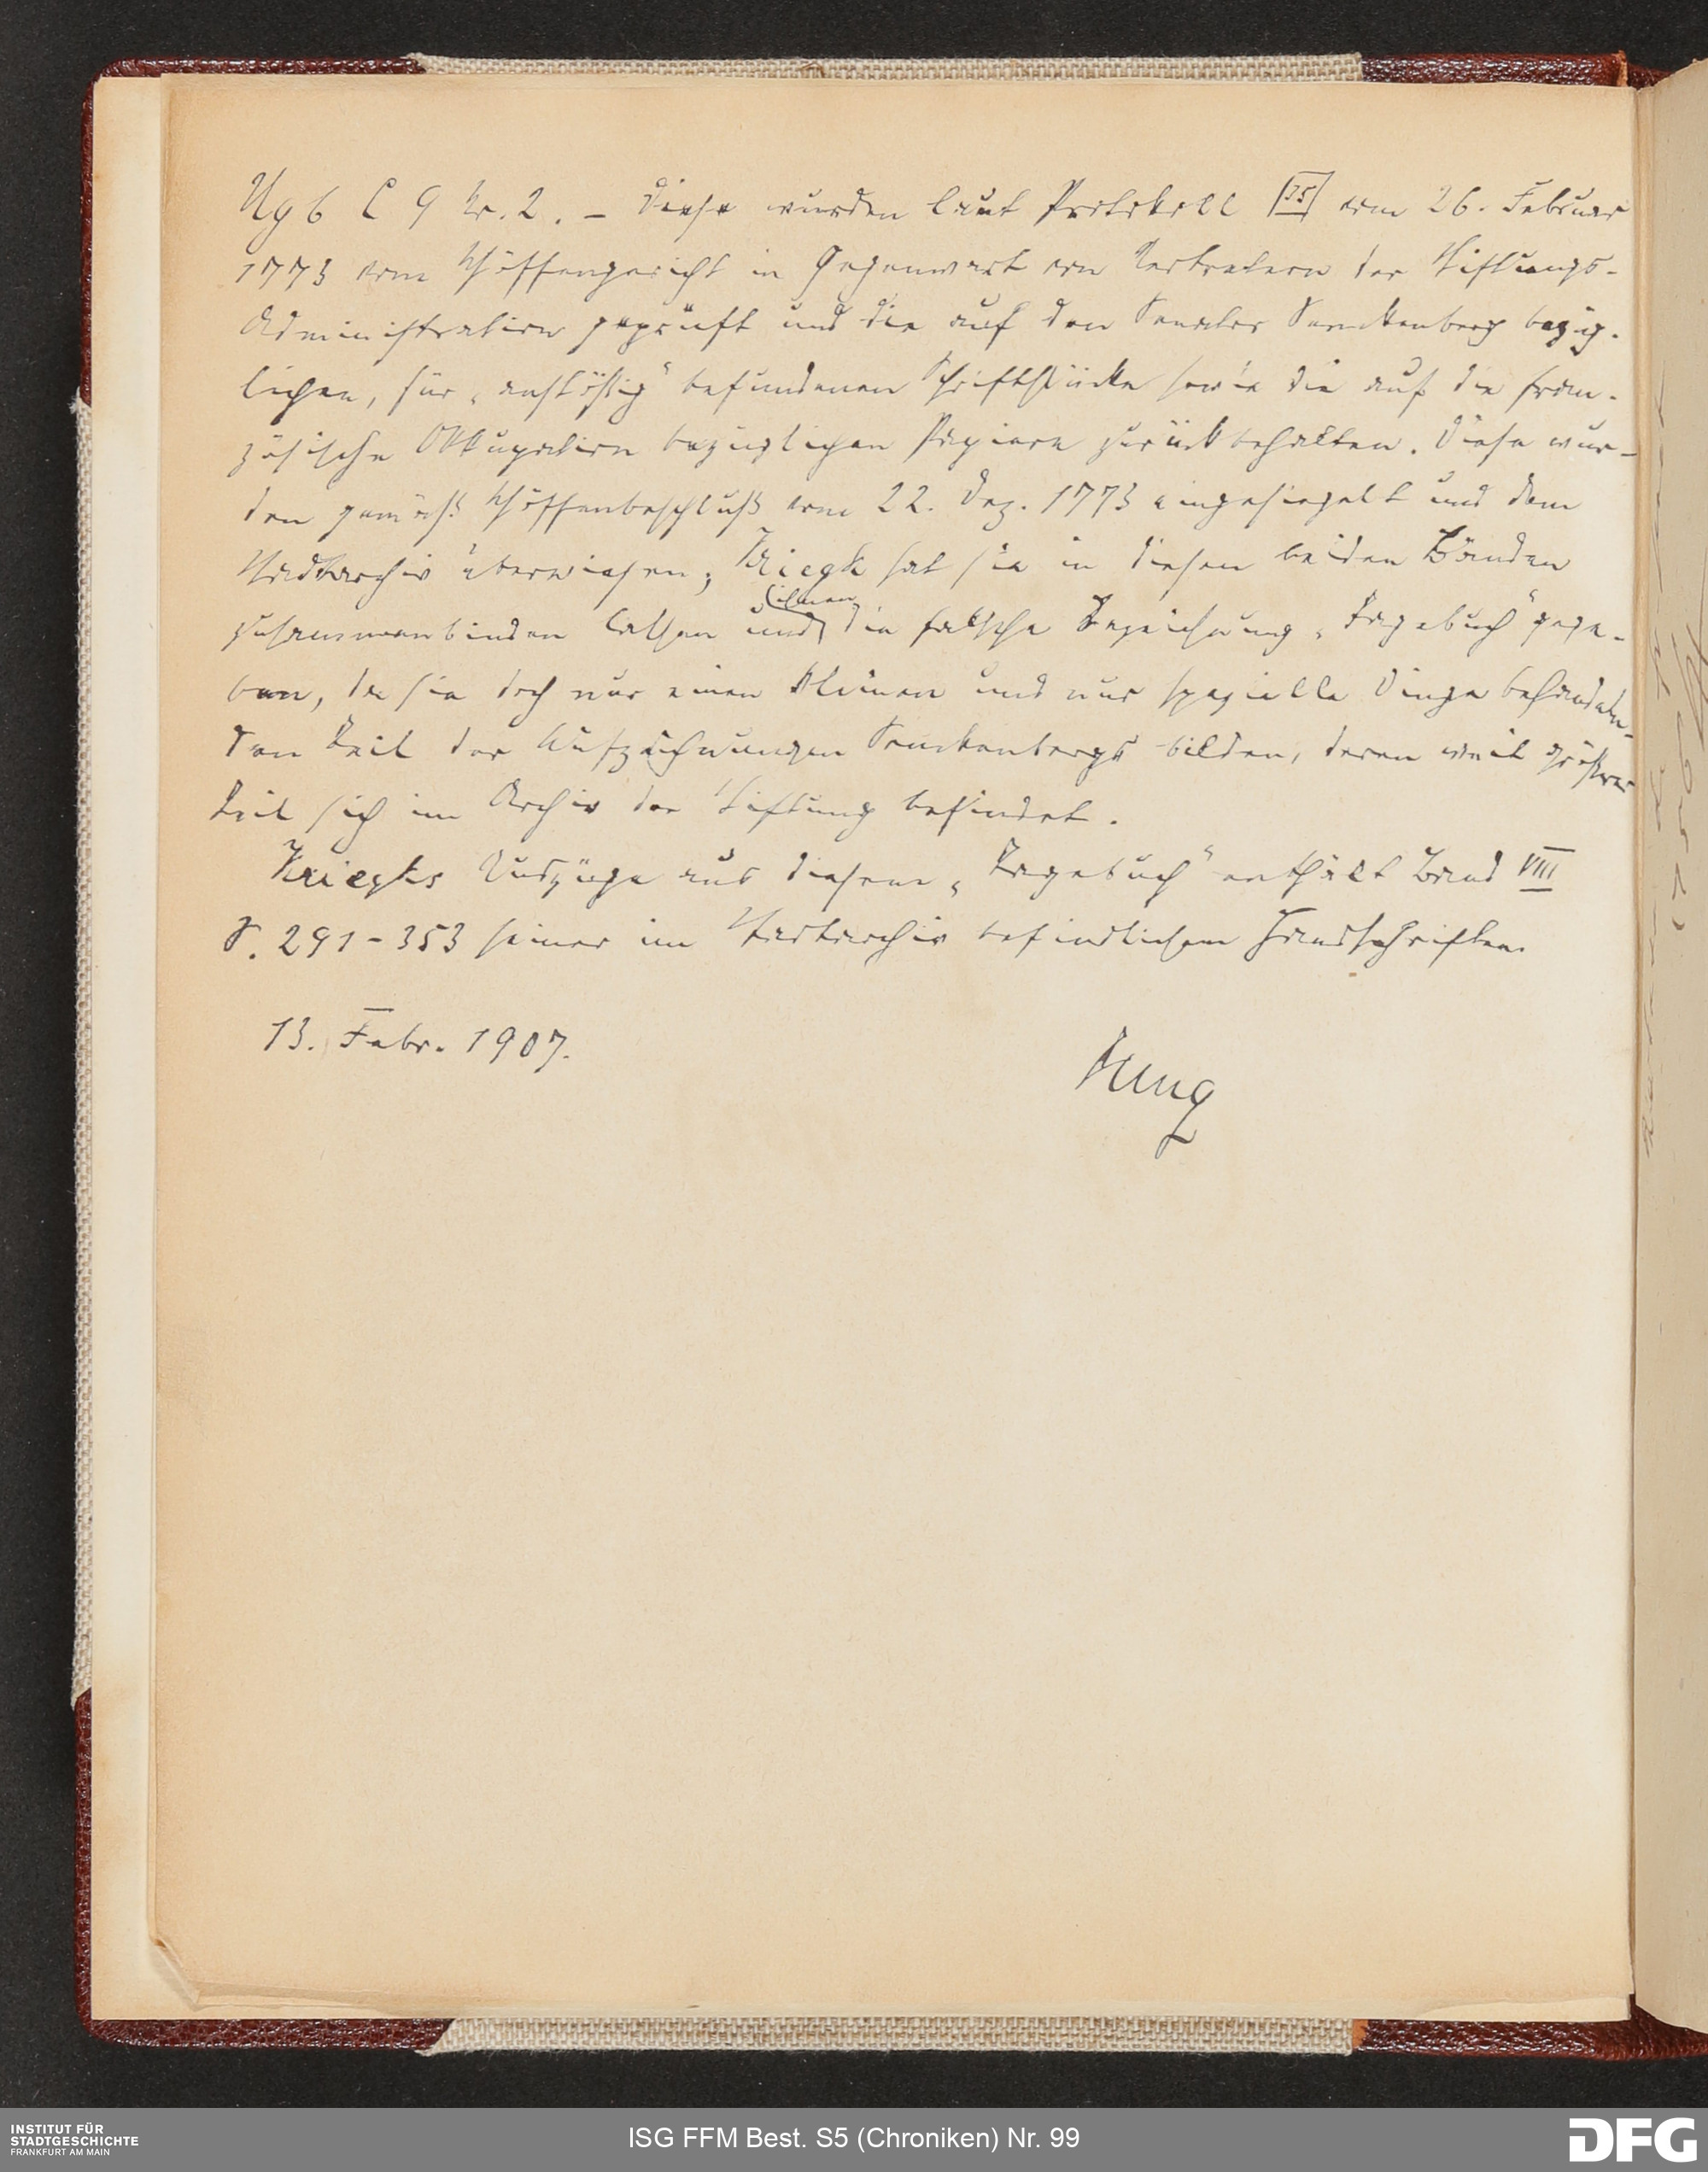 Ugb C 9 Nr. 2. – Diese wurden laut Protokoll [75] vom 26. Februar
1773 vom Schöffengericht in Gegenwart von Vertretern der Stiftungs-
Administration geprüft und die auf den Senator Senckenberg bezüg-
lichen, für „anstößig“ befundenen Schriftstücke sowie die auf die fran-
zösische Okkupation bezüglichen Papiere zurückbehalten. Diese wur-
den gemäß Schöffenbeschluß vom 22. Dez. 1773 eingesiegelt und dem
Stadtarchiv überwiesen; Kriegk hat sie in diesen beiden Bänden
zusammenbinden lassen und ihnen die falsche Bezeichnung „Tagebuch“ gege-
ben, da sie doch nur einen kleinen und nur spezielle Dinge behandeln-
den Teil der Aufzeichnungen Senckenbergs bilden, deren weit größter
Teil sich im Archiv der Stiftung befindet.
Kriegks Auszüge aus diesem „Tagebuch“ enthält Band VIII
S. 291-353 seiner im Stadtarchiv befindlichen Handschriften.
13. Febr. 1907.
Jung
INSTITUT FÜR
STADTGESCHICHTE
FRANKFURT AM MAIN
ISG FFM Best. S5 (Chroniken) Nr. 99
DFG